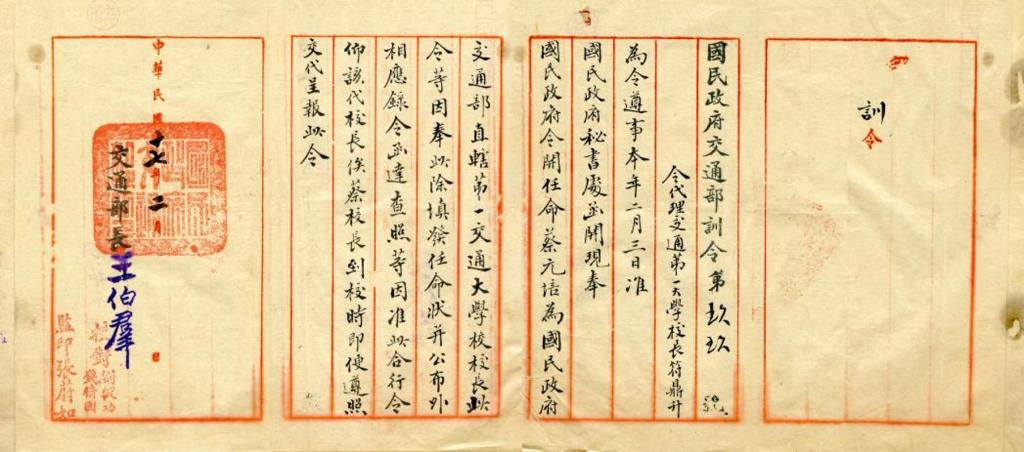 訓令
國民政府交通部訓令第玖玖號
令代理交通第一大學校長符鼎升
為令遵事本年二月三日准
國民政府秘書處函開現奉
國民政府令開任命蔡元培為國民政府
交通部直轄第一交通大學校校長此
令等因奉此除填發任命狀并公布外
相應錄令函達查照等因准此合行令
仰該代校長俟蔡校長到校時即便遵照
交代呈報此令
中華民國十七年二月 日
交通部長王伯羣
校對
監印張蔚如